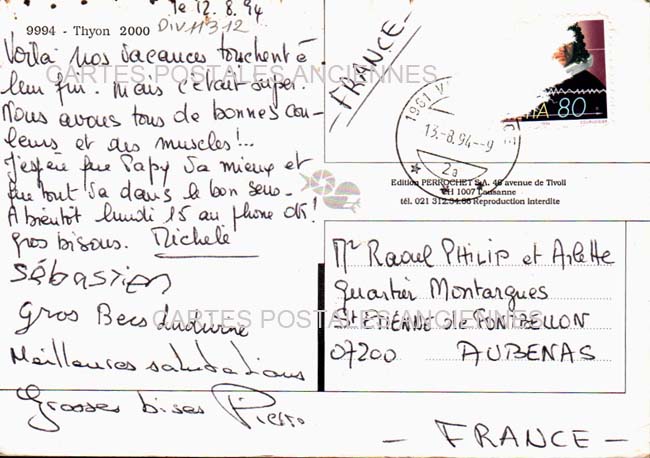 le 12.8.94
9994 - Thyon 2000
DIV11312
Voilà nos vacances touchent à
leur fin. Mais c'était super.
Nous avons tous de bonnes cou-
leurs et des muscles!..
J'espère que Papy va mieux et
que tout va dans le bon sens-
A bientôt lundi 15 au phone OK!
Gros bisous. Michelé
SÉBASTIEN
Gros Becs
Meilleures salutations
Grosses bises Pierro
-FRANCE-
1961
13-8.94--9
2a
80
Edition PERROCHET S.A. 46 avenue de Tivoli
CH 1007 Lausanne
tél. 021 312.34.66 Reproduction interdite
Mr Raoul PHILIP et Arlette
Quartier Montargues
St ETIENNE de FONTBELLON
07200 AUBENAS
- FRANCE -
CARTES POSTALES ANCIENNES
CARTES POSTALES ANCIENNES